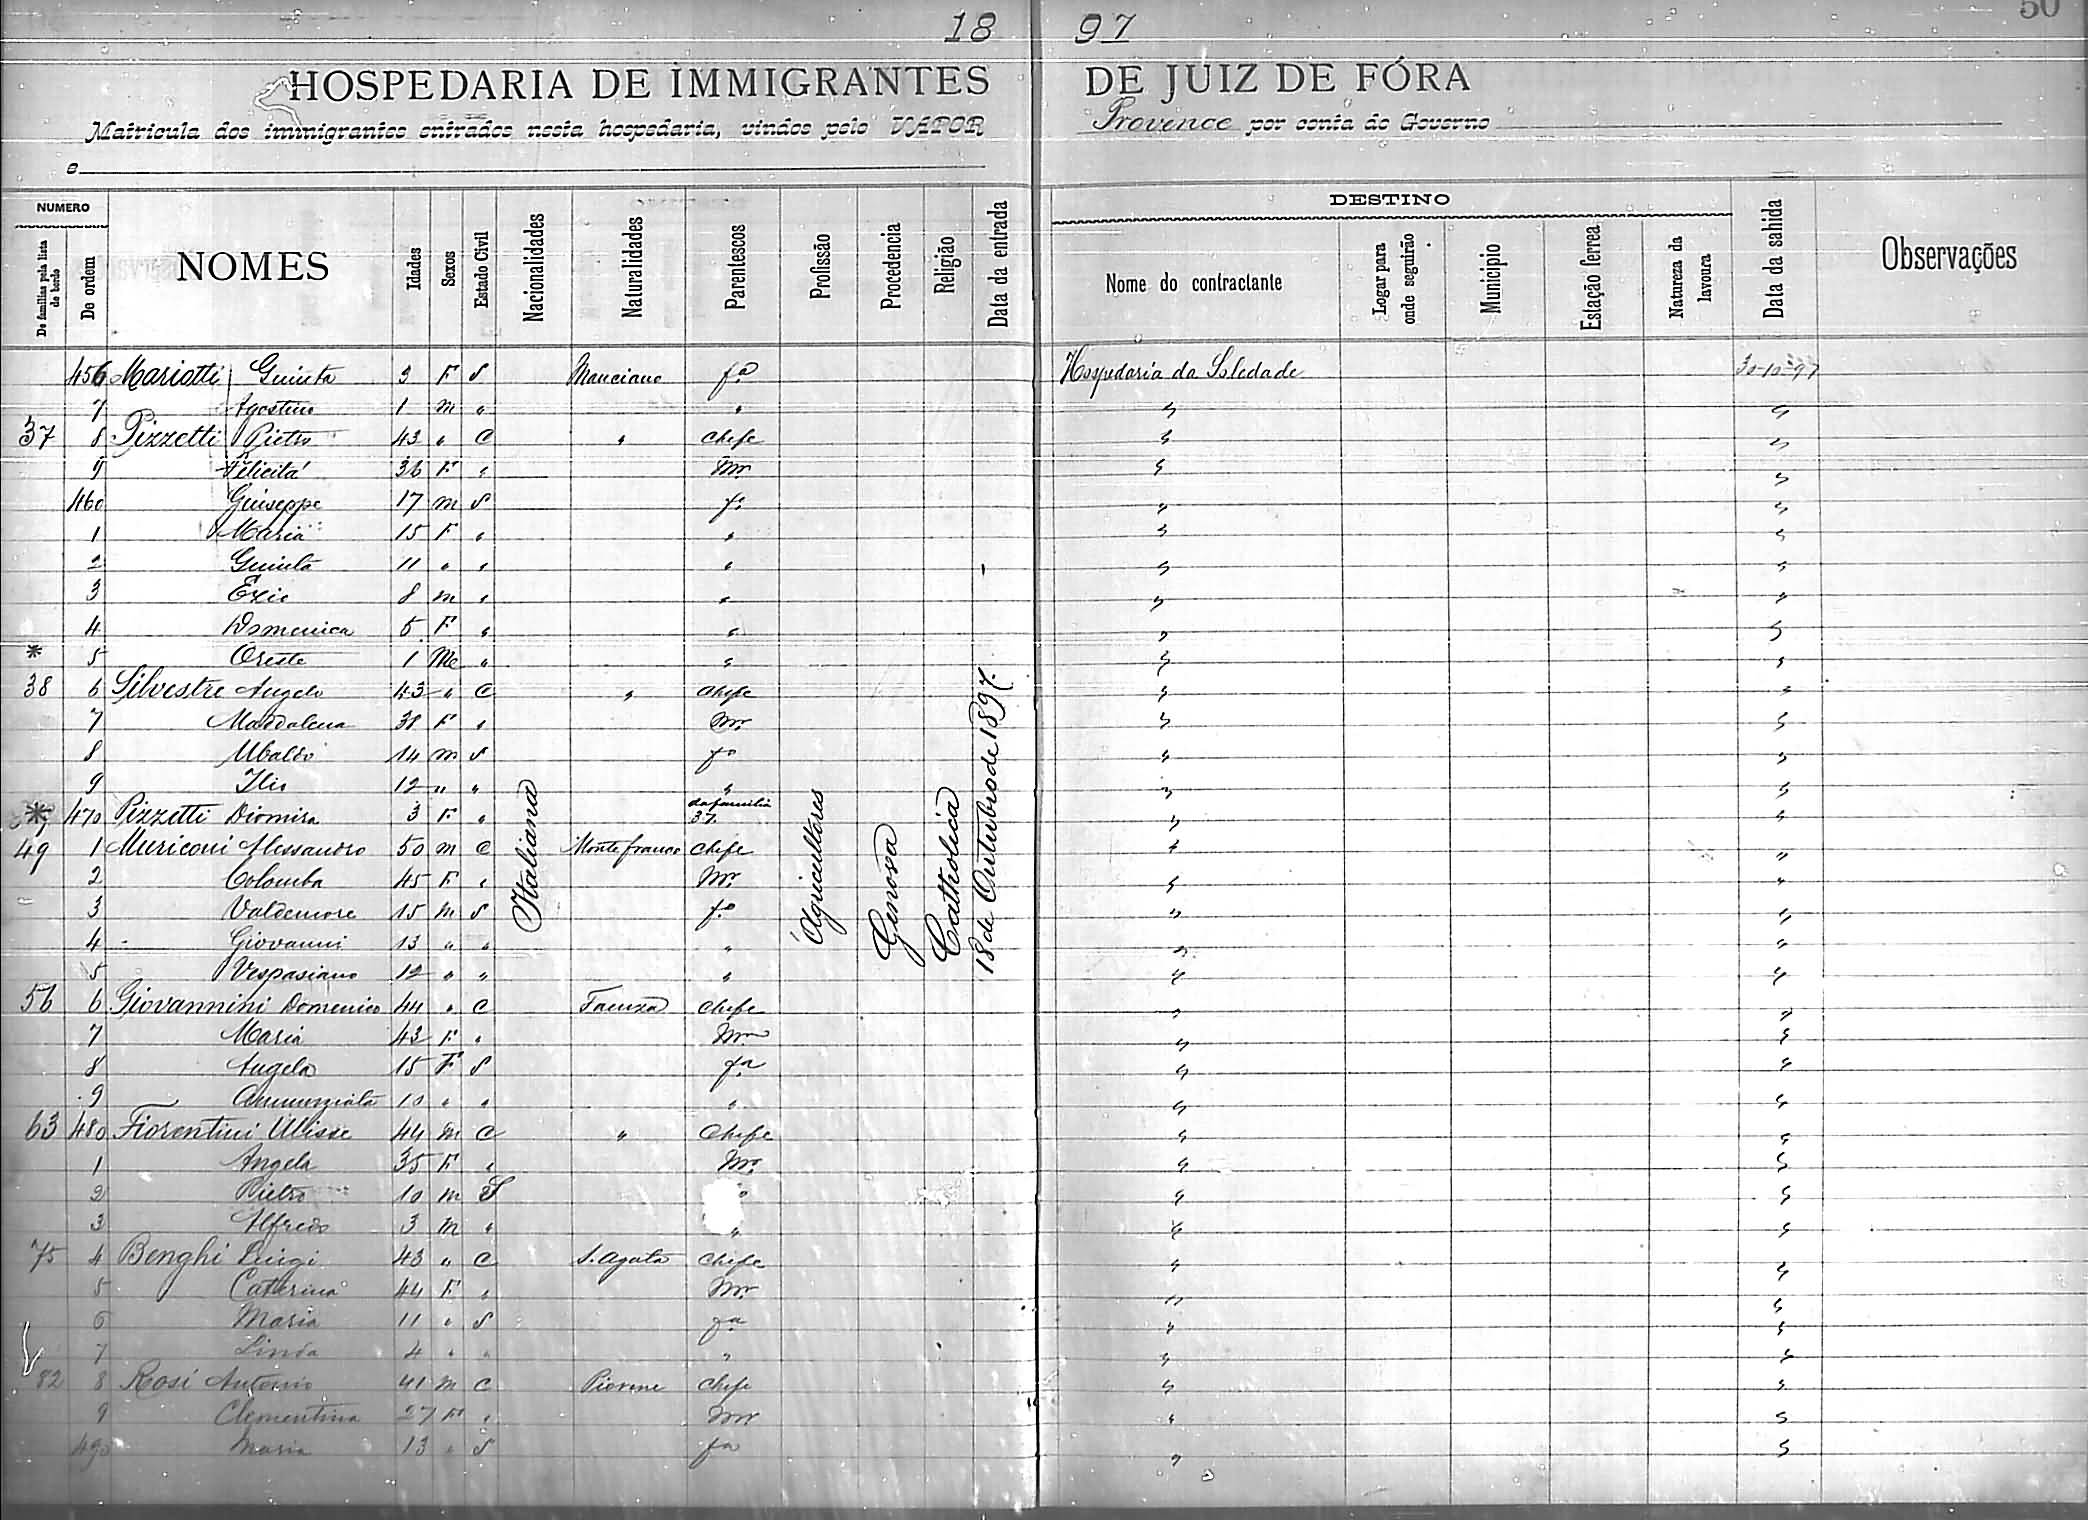 50
18 97
HOSPEDARIA DE IMMIGRANTES DE JUIZ DE FÓRA
Matricula dos immigrantes entrados nesta hospedaria, vindos pelo VAPOR Provence por conta do Governo
e
NUMERO
De familias pela lista de bordo
De ordem
NOMES
Idades
Sexos
Estado Civil
Nacionalidades
Naturalidades
Parentescos
Profissão
Procedencia
Religião
Data da entrada
DESTINO
Nome do contractante
Logar para onde seguirão
Municipio
Estação ferrea
Natureza da lavoura
Data da sahida
Observações
456 Mariotti Guinta 3 F S Manciano fa Hospedaria da Soledade 30-10-97
7 Agostino 1 m " " " "
37 8 Pizzetti Pietro 43 " C " Chefe " "
9 Felicita' 36 F " Mr. " "
460 Guiseppe 17 m S fo " "
1 Maria 15 F " " " "
2 Guinta 11 " " " " "
3 Ezio 8 m " " " "
4 Domenica 5 F " " " "
* 5 Oreste 1 M " " " "
38 6 Silvestre Angelo 43 " C " Chefe " "
7 Maddalena 38 F " Mr. " "
8 Ubaldo 14 m S fo " "
9 Ilio 12 " " " " "
* 470 Pizzetti Diomira 3 F " da familia 37 " "
49 1 Muriconi Alessandro 50 m C Montefranco Chefe " "
2 Colomba 45 F " Mr. " "
3 Valdemore 15 m S fo " "
4 Giovanni 13 " " " " "
5 Vespasiano 12 " " " " "
56 6 Giovannini Domenico 44 " C Faenza Chefe " "
7 Maria 43 F " Mr " "
8 Angela 15 F S fa " "
9 Annunziata 10 " " " " "
63 480 Fiorentini Ulisse 44 m C " Chefe " "
1 Angela 35 F " Mr. " "
2 Pietro 10 m S " "
3 Alfredo 3 m " " " "
75 4 Benghi Luigi 43 " C S. Agata Chefe " "
5 Caterina 44 F " Mr. " "
6 Maria 11 " S fa " "
7 Linda 4 " " " " "
82 8 Rosi Antonio 41 m C Piovene Chefe " "
9 Clementina 27 F " Mr " "
490 Maria 13 " S fa " "
Italiana
Agricultores
Genova
Catholica
18 de Outubro de 1897.